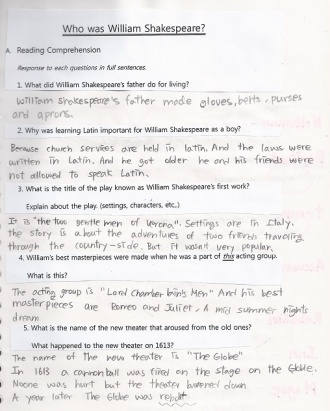 Who was William Shakespeare?
A. Reading Comprehension
Response to each questions in full sentences.
1. What did William Shakespeare's father do for living?
William shakespeare's father made gloves, belts, purses
and aprons.
2. Why was learning Latin important for William Shakespeare as a boy?
Because church services are held in latin. And the laws were
written in Latin. And he got older he and his friends were
not allowed to speak Latin.
3. What is the title of the play known as William Shakespeare's first work?
Explain about the play. (settings, characters, etc.)
It is "the two gentle men of Verona". Settings are in Italy.
the story is about the adventures of two friends traveling
through the country-side. But it wasn't very popular.
4. William's best masterpieces were made when he was a part of this acting group.
What is this?
The acting group is "Lord Chamberlain's Men" And his best
masterpieces are Romeo and Juliet, A mid summer nights
dream.
5. What is the name of the new theater that aroused from the old ones?
What happened to the new theater on 1613?
The name of the new theater is "The Globe"
In 1613 a cannonball was fired on the stage on the Globe.
Noone was hurt but the theater burened down
A year later The Globe was